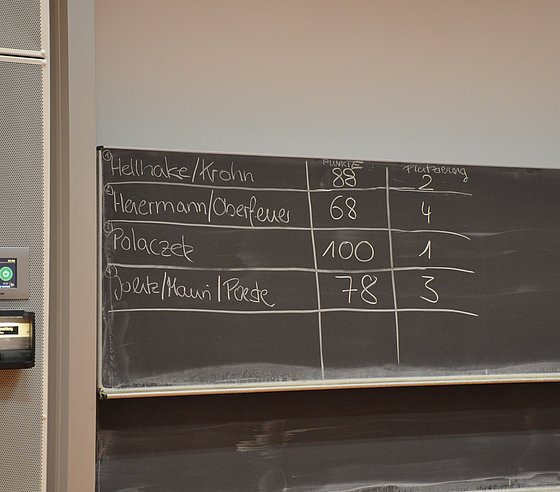 PUNKTE Platzierung
① Hellhake/Krohn 88 2
② Heiermann/Oberfeuer 68 4
③ Polaczek 100 1
④ 78 3